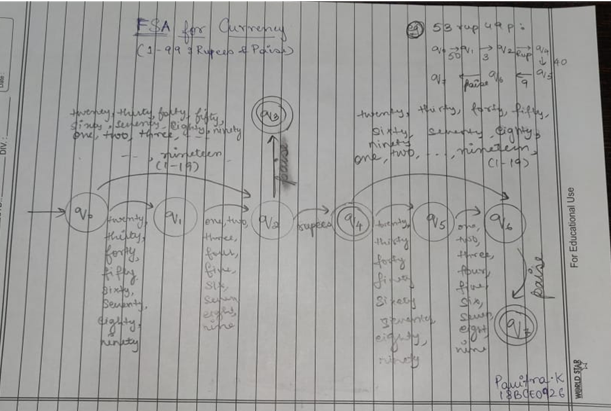 FSA for Currency
(1-99 : Rupees & Paise)
eg 53 rup 49 p :
q0 → q1 → q2 → q4
50 3 rup
↓ 40
q7 ← q6 ← q5
paise 9
twenty, thirty, forty, fifty,
sixty, seventy, eighty, ninety
one, two, three,
..., nineteen
(1-19)
q3
paise
twenty, thirty, forty, fifty,
sixty, seventy, eighty,
ninety
one, two, ..., nineteen,
(1-19)
q0
twenty,
thirty,
forty,
fifty,
sixty,
seventy,
eighty,
ninety
q1
one, two,
three,
four,
five,
six,
seven
eight,
nine
q2
rupees
q4
twenty,
thirty
forty
fifty
sixty
seventy
eighty,
ninety
q5
one,
two,
three,
four,
five,
six,
seven
eight,
nine
q6
paise
q7
Pavitra.K
18BCE0926
DIV.:
For Educational Use
WORLD STAR